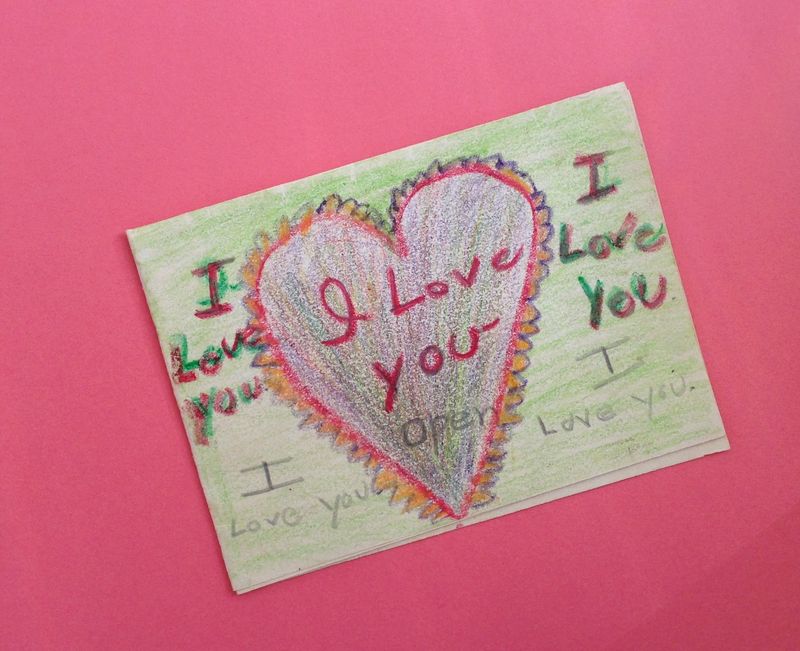 I
Love
You
I Love
you-
Open
I
Love
You.
I
Love you
I
Love you.